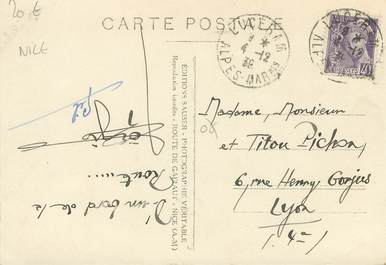 20 €
NICE
CARTE POSTALE
ALPES-MARMES
6-12
38
D'un bord de la
Route....
EDITIONS SAUSER - PHOTOGRAPHIE VÉRITABLE
Reproduction interdite - ROUTE DE GAIRAUT - NICE (A.-M.)
Madame, Monsieur
et Titou Pichon
6, rue Henry Gorjus
Lyon
(4e)